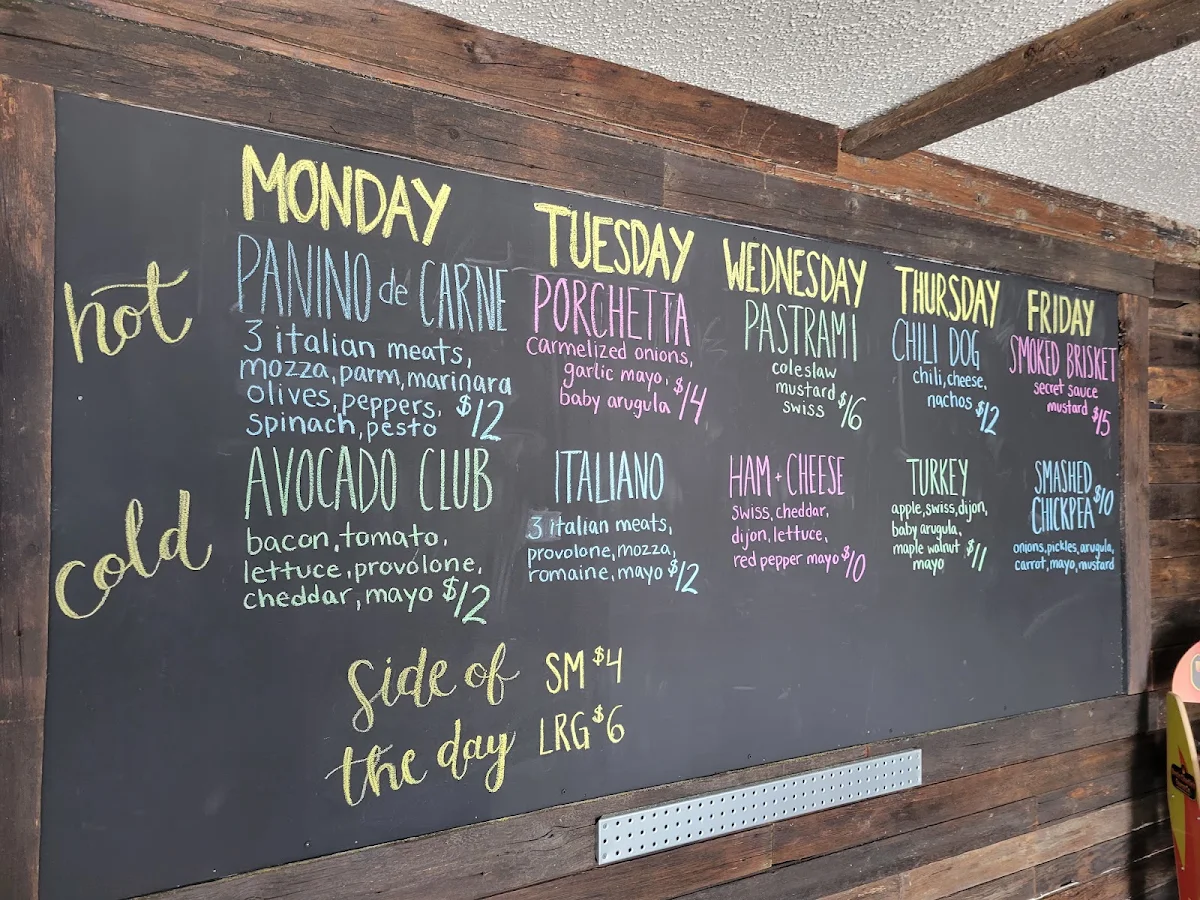 MONDAY
hot
PANINO de CARNE
3 italian meats,
mozza, parm, marinara
olives, peppers,
spinach, pesto $12
TUESDAY
PORCHETTA
carmelized onions,
garlic mayo,
baby arugula $14
WEDNESDAY
PASTRAMI
coleslaw
mustard
swiss $16
THURSDAY
CHILI DOG
chili, cheese,
nachos $12
FRIDAY
SMOKED BRISKET
secret sauce
mustard $15
cold
AVOCADO CLUB
bacon, tomato,
lettuce, provolone,
cheddar, mayo $12
ITALIANO
3 italian meats,
provolone, mozza,
romaine, mayo $12
HAM + CHEESE
swiss, cheddar,
dijon, lettuce,
red pepper mayo $10
TURKEY
apple, swiss, dijon,
baby arugula,
maple walnut
mayo $11
SMASHED
CHICKPEA $10
onions, pickles, arugula,
carrot, mayo, mustard
side of
the day
SM $4
LRG $6